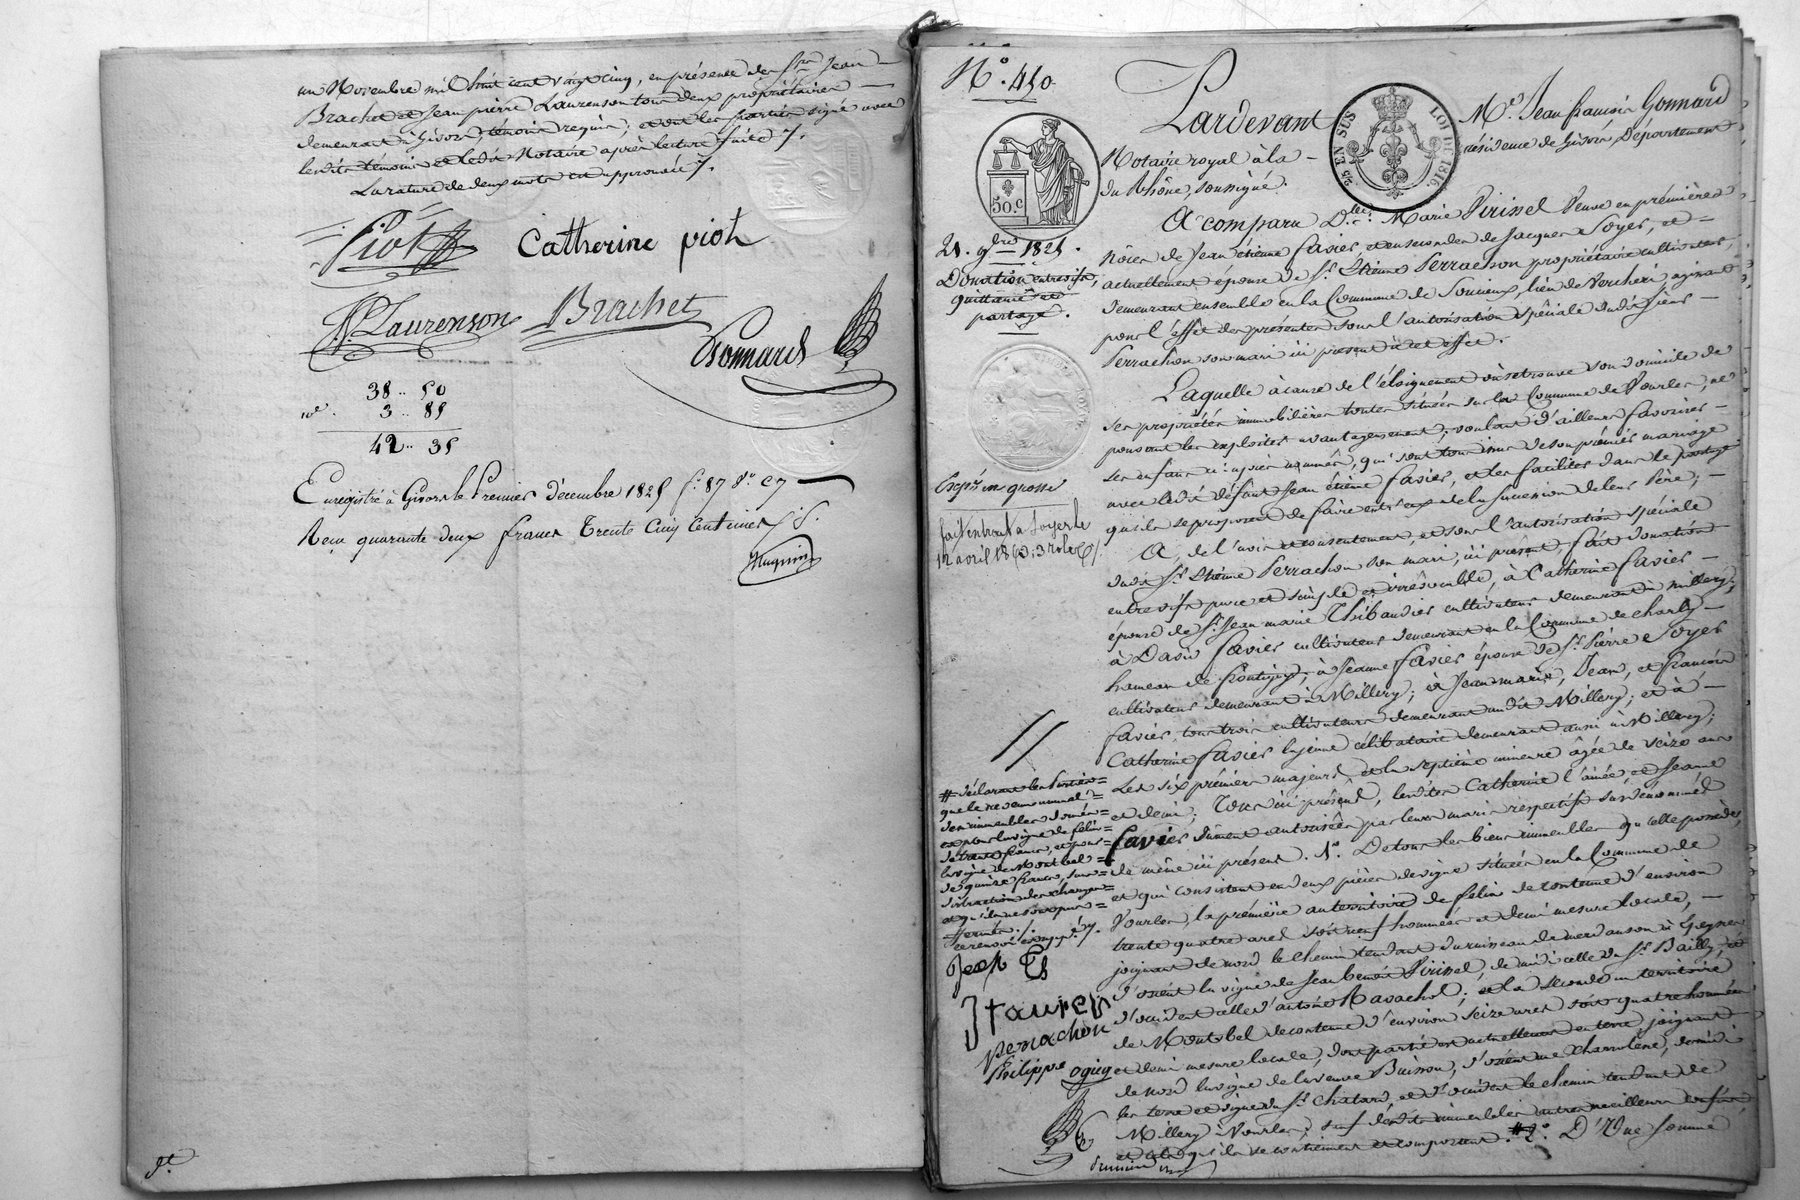 un Novembre mil huit cent vingt cinq, en présence des Srs Jean
Brachet et Jean pierre Laurenson tous deux propriétaires
demeurant à Givors, témoins requis, et ont les parties signé avec
lesdits témoins et ledit Notaire après lecture faite ./.
La rature de deux mots est approuvée ./.
Piot
Catherine piot
JP Laurenson
Brachet
Gonnard
38 .. 50
3 .. 85
42 .. 35
Enregistré à Givors le Premier Décembre 1825 fo. 87 Ro. C7
Reçu quarante deux francs Trente Cinq Centimes
No. 450
Pardevant Me. Jean françois Gonnard
Notaire royal à la résidence de Givors, Département
du Rhône, soussigné.
25 EN SUS
LOI DE 1816
50.c
21. 9bre 1825.
Donation entrevifs,
quittance et
partage.
A comparu Dlle. Marie Pirissel Veuve en premières
nôces de Jean étienne favier, et en secondes de Jacques Soyer, et
actuellement épouse de Sr. Etienne Perrachon propriétaire cultivateur,
demeurant ensemble en la Commune de Soucieux, lieu de Verchery, agissant
pour l'effet des présentes sous l'autorisation spéciale dudit sieur
Perrachon son mari ici présent à cet effet.
Laquelle à cause de l'éloignement où se trouve son domicile de
ses propriétés immobilières toutes situées sur la Commune de Vourles, ne
pouvant les exploiter avantageusement; voulant d'ailleurs favoriser
ses enfans ci-après nommés, qui sont tous issus de son premier mariage
avec ledit défunt Jean étienne favier, et les faciliter dans le partage
qu'ils se proposent de faire entr'eux de la succession de leur Père;
A, de l'avis et consentement, et sous l'autorisation spéciale
dudit Sr. Etienne Perrachon son mari, ici présent, fait donation
entrevifs pure et simple et irrévocable, à Catherine favier
épouse de Sr. Jean marie Thibaudier cultivateur demeurant à millery;
à David favier cultivateur demeurant en la Commune de charly
hameau de frontigny; à Jeanne favier épouse de Sr. Pierre Soyer
cultivateur demeurant à Millery; à Jean-marie, Jean, et françois
favier, tous trois cultivateurs demeurant audit Millery; et à
Catherine favier la jeune célibataire demeurant aussi à Millery;
Les six premiers majeurs, et la septième mineure âgée de seize ans
et demi; Tous ici présens, lesdites Catherine l'aînée, et Jeanne
favier dûment autorisées par leurs maris respectifs susdénommés
de même ici présens. 1o. De tous les biens immeubles qu'elle possède,
et qui consistent en deux pièces de vigne situées en la Commune de
Vourles, la première au territoire de felin de contenue d'environ
trente quatre ares soit neuf hommées et demi mesure locale,
joignant de nord le chemin tendant du ruisseau de merdanson à
d'orient la vigne de Jean benoit Pirissel, de midi celle du Sr. Bailly, et
d'occident celle d'antoine Ravachol; et la seconde au territoire
de Montbel de contenue d'environ seize ares soit quatre hommées
et demi mesure locale, dont partie est actuellement en terre, joignant
de nord la vigne de la veuve Buisson, d'orient une charrière, de midi
les terre et vigne du Sr. Chatard, et d'occident le chemin tendant de
Millery à Vourles; sauf desdits immeubles autres meilleurs confins
et tels qu'ils se contiennent et comportent. # 2o. D'Une somme
Expée. en grosse
fait extrait à Soyer le
12 avril
# déclarant les parties
que le revenu annuel
des immeubles donnés
est pour la vigne de félin
de trente francs, et pour
la vigne de Montbel
de quinze francs, sans
distraction des charges
et qu'ils ne sont pas
affermés ./.
ce renvoi est approuvé ./.
J favier
perrachon
Philippe ogier